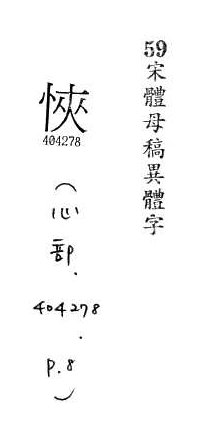 59宋體母稿異體字
㤲
404278
(心部.404278.P.8)